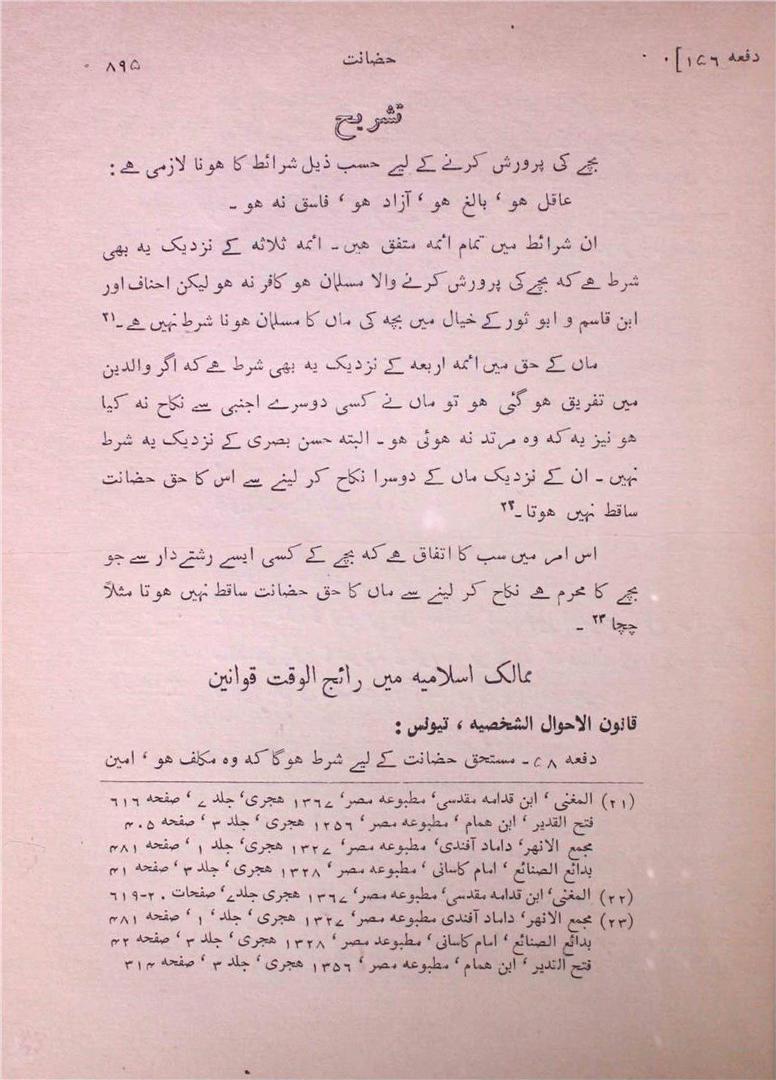 دفعہ ۱۵۶] حضانت ۸۹۵
تشریح
بچے کی پرورش کرنے کے لیے حسب ذیل شرائط کا ہونا لازمی ہے :
عاقل ہو ، بالغ ہو ، آزاد ہو ، فاسق نہ ہو ۔
ان شرائط میں تمام ائمہ متفق ہیں ۔ ائمہ ثلاثہ کے نزدیک یہ بھی
شرط ہے کہ بچے کی پرورش کرنے والا مسلمان ہو کافر نہ ہو لیکن احناف اور
ابن قاسم و ابو ثور کے خیال میں بچہ کی ماں کا مسلمان ہونا شرط نہیں ہے ۔۲۱
ماں کے حق میں ائمہ اربعہ کے نزدیک یہ بھی شرط ہے کہ اگر والدین
میں تفریق ہو گئی ہو تو ماں نے کسی دوسرے اجنبی سے نکاح نہ کیا
ہو نیز یہ کہ وہ مرتد نہ ہوئی ہو ۔ البتہ حسن بصری کے نزدیک یہ شرط
نہیں ۔ ان کے نزدیک ماں کے دوسرا نکاح کر لینے سے اس کا حق حضانت
ساقط نہیں ہوتا ۔۲۲
اس امر میں سب کا اتفاق ہے کہ بچے کے کسی ایسے رشتے دار سے جو
بچے کا محرم ہے نکاح کر لینے سے ماں کا حق حضانت ساقط نہیں ہوتا مثلاً
چچا ۲۳ ۔
ممالک اسلامیہ میں رائج الوقت قوانین
قانون الاحوال الشخصیہ ، تیونس :
دفعہ ۵۸ ۔ مستحق حضانت کے لیے شرط ہوگا کہ وہ مکلف ہو ، امین
(۲۱) المغنی ، ابن قدامہ مقدسی ، مطبوعہ مصر ، ۱۳۶۷ ہجری ، جلد ۷ ، صفحہ ۶۱۶
فتح القدیر ، ابن ہمام ، مطبوعہ مصر ، ۱۲۵۶ ہجری ، جلد ۳ ، صفحہ ۴۰۵
مجمع الانہر ، داماد آفندی ، مطبوعہ مصر ، ۱۳۲۷ ہجری ، جلد ۱ ، صفحہ ۴۸۱
بدائع الصنائع ، امام کاسانی ، مطبوعہ مصر ، ۱۳۲۸ ہجری ، جلد ۳ ، صفحہ ۴۱
(۲۲) المغنی ، ابن قدامہ مقدسی ، مطبوعہ مصر ، ۱۳۶۷ ہجری جلد ۷ ، صفحات ۲۰-۶۱۹
(۲۳) مجمع الانہر ، داماد آفندی مطبوعہ مصر ، ۱۳۲۷ ہجری ، جلد ، ۱ ، صفحہ ۴۸۱
بدائع الصنائع ، امام کاسانی ، مطبوعہ مصر ، ۱۳۲۸ ہجری ، جلد ۳ ، صفحہ ۴۲
فتح القدیر ، ابن ہمام ، مطبوعہ مصر ، ۱۳۵۶ ہجری ، جلد ۳ ، صفحہ ۳۱۴